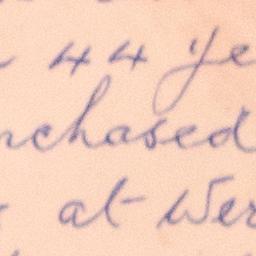 44 ye
rchased
at Wer